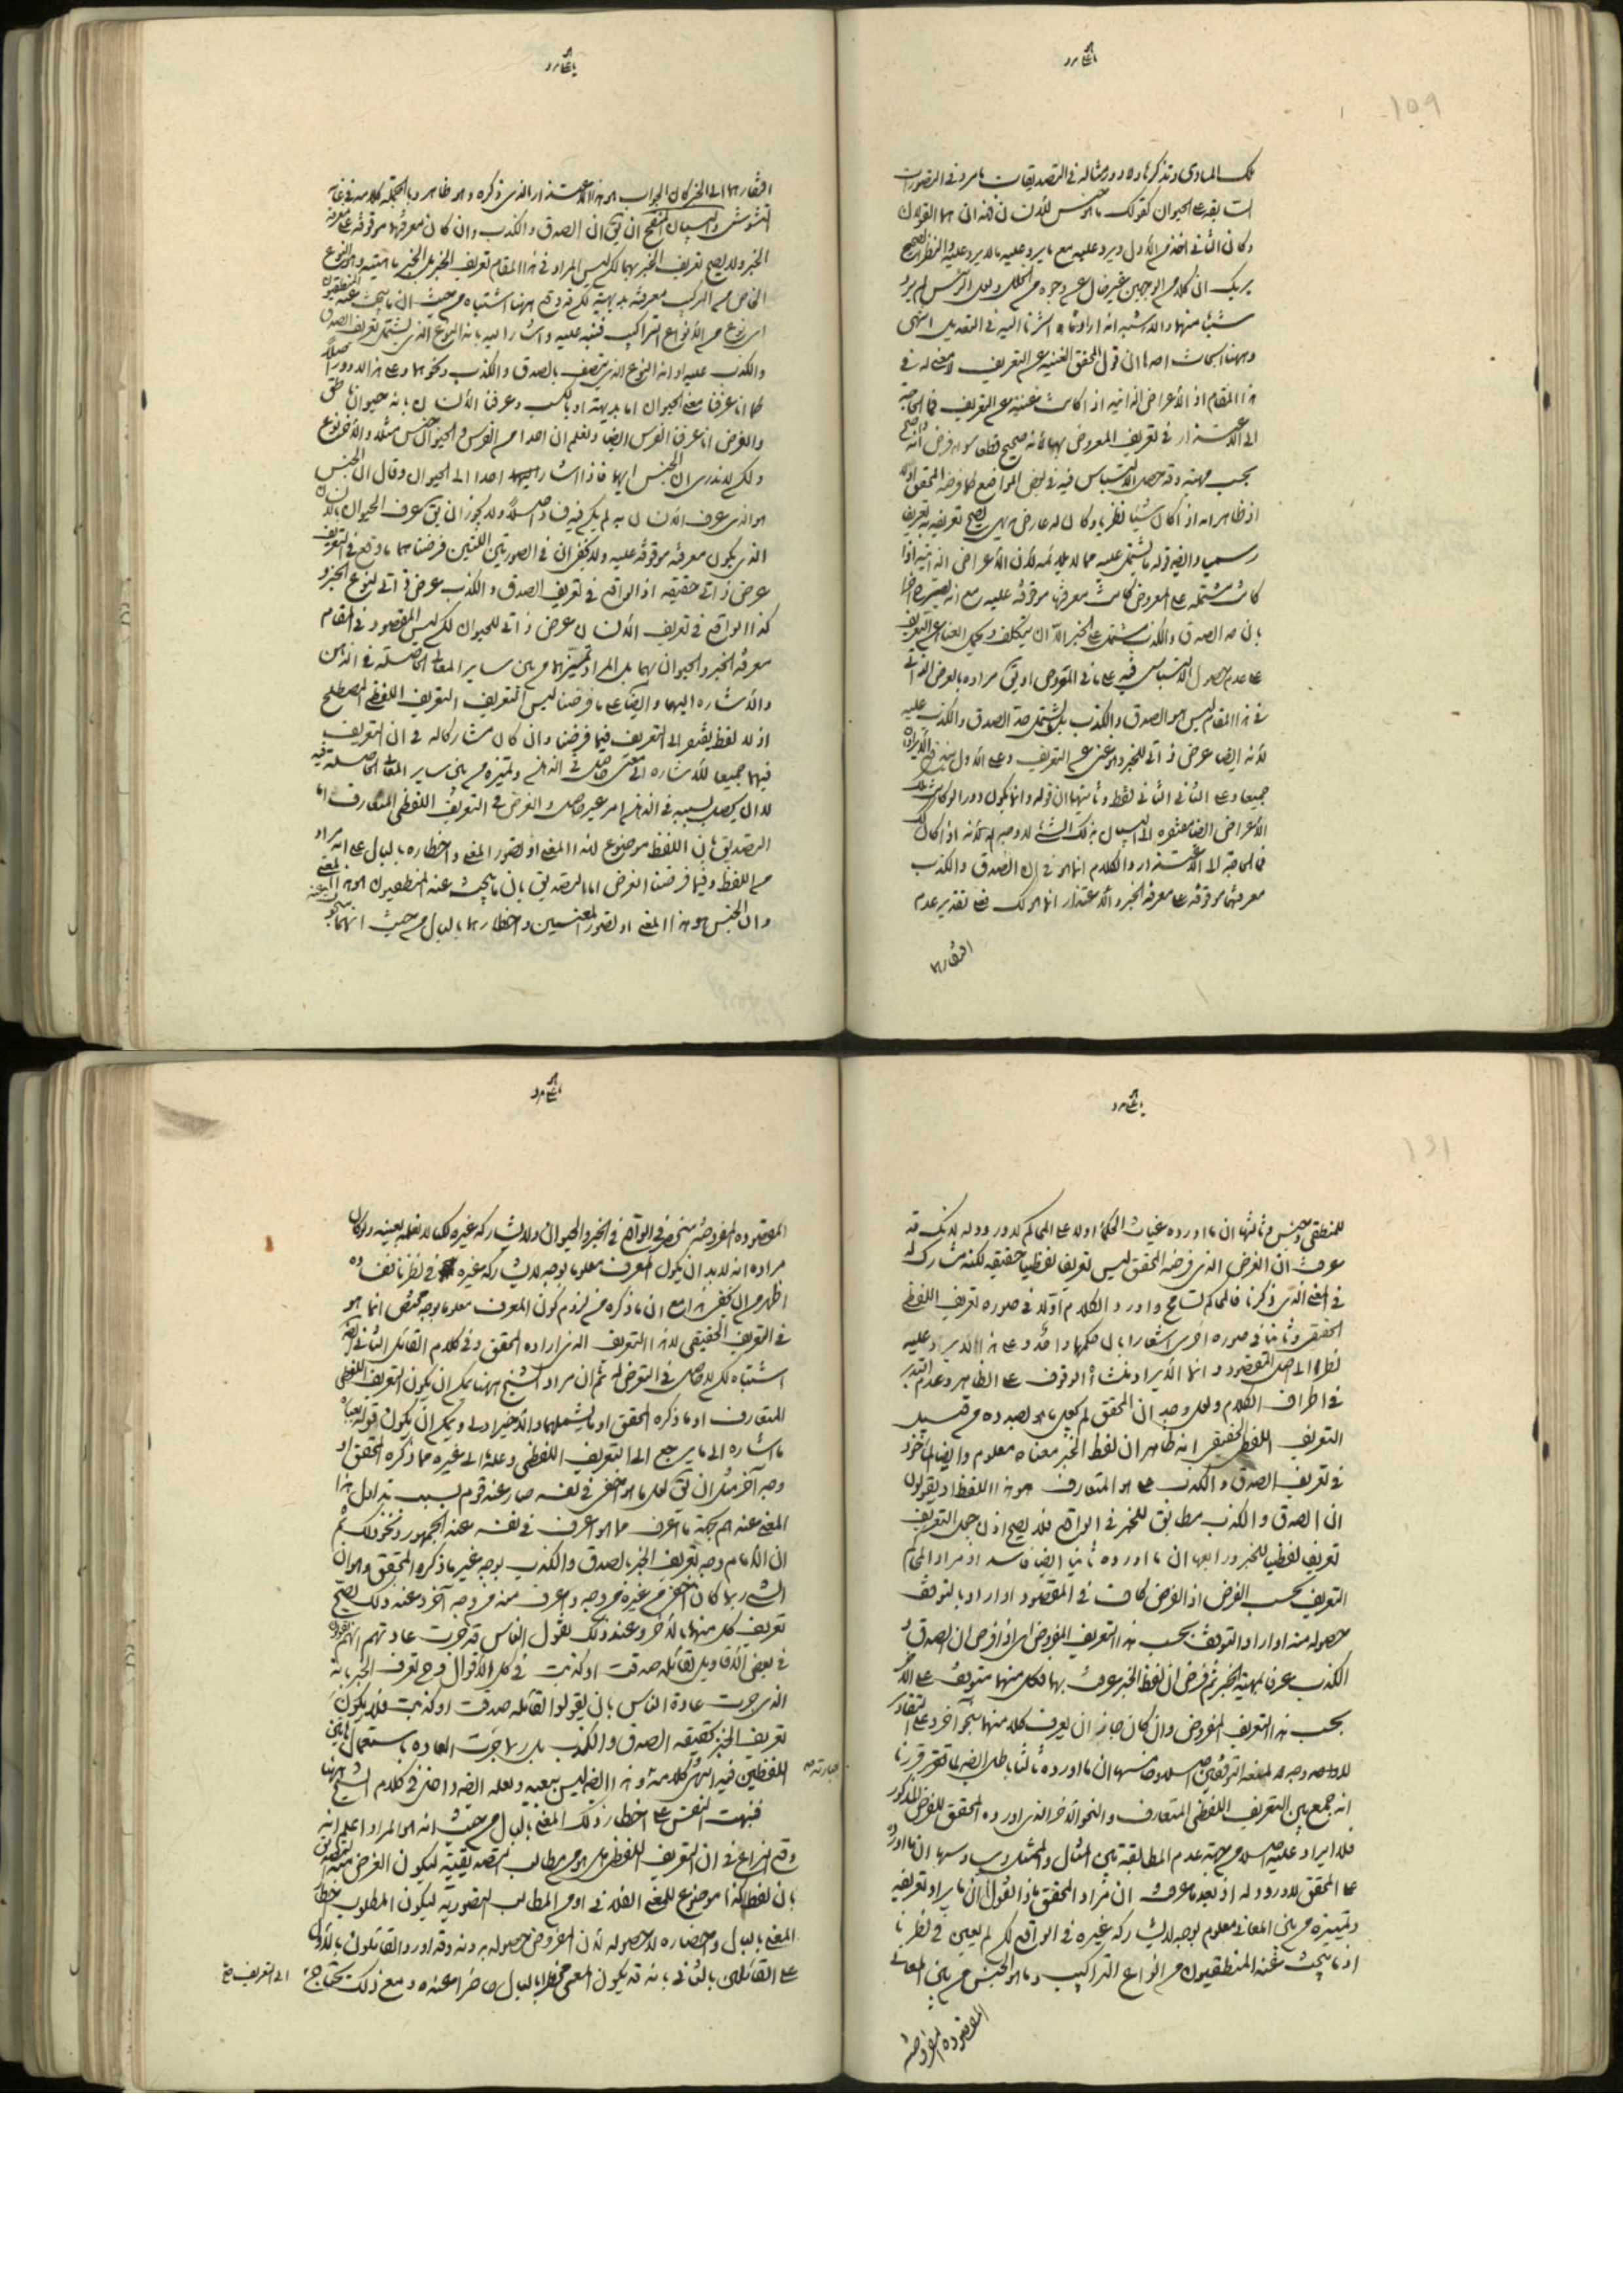 تلك المبادى وتذكرها ولا دور ومثاله فى التصديقات ما مر وفى التصورات
وكان الثانى اخذ من الاول ويرد عليه مع ما يرد عليه ما لا يرد عليه والنظر الصحيح
يريك ان كلام الوجهين غير خال عن وجوه من الخلل ولعل الرئيس لم يرد
شيئا منهما والاشبه انه اراد ما اشرنا اليه فى التعديل انتهى
وههنا ابحاث احدها ان قول المحقق الغنية عن التعريف لا معنى له فى
هذا المقام اذ الاعراض الذاتية اذا كانت غنية عن التعريف فما الحاجة
الى الاعتذار فى تعريف المعروض بها فانه صحيح قطعا
بحسب مهيته وقد حصل الالتباس فيه فى بعض المواضع كما فرضه المحقق
اذ ظاهر انه اذا كان شيئا نظريا وكان له عارض بديهى يصح تعريفه به تعريفا
رسميا وايضا قوله يشتمل عليه مما لا يلايمه لان الاعراض الذاتية اذا
كانت مشتملة على المعروض كانت معرفتها موقوفة عليه مع انه
بان حد الصدق والكذب مشتمل على الخبر الا ان يتكلف ويحمل الغناء عن التعريف
على عدم حصول الالتباس فيه على ما فى المعروض او يق مراده بالعرض الذاتى
فى هذا المقام ليس هو الصدق والكذب بل يشتمل حد الصدق والكذب عليه
لانه ايضا عرض ذاتى للخبر وهو غنى عن التعريف وعلى الاول
جميعا وعلى الثانى الثانى فقط وثانيها ان قوله وانما يكون دورا لو كانت تلك
الاعراض ايضا مفتقرة الى البيان بذلك الشئ لا وجه له لانه اذا كان كذلك
فما الحاجة الى الاعتذار والكلام انما هو فى ان الصدق والكذب
معرفتهما موقوفة على معرفة الخبر والاعتذار انما هو لذلك فعلى تقدير عدم
افتقارهما
افتقارهما الى الخبر كان الجواب هو هذا لا الاعتذار الذى ذكره وهو ظاهر وبالجملة كلامه فى غاية
التشوش والبيان المنقح ان يق ان الصدق والكذب وان كان معرفتهما موقوفة على معرفة
الخبر ولا يصح تعريف الخبر بهما لكن ليس المراد فى هذا المقام تعريف الخبر بل الخبر ماهيته وهو النوع
الخاص من المركب معرفته بديهية لكن قد وقع ههنا اشتباه من حيث ان ما يبحث عنه المنطقيون
اى نوع من الانواع التراكيب فنبه عليه واشار اليه بانه النوع الذى يشتمل تعريف الصدق
والكذب عليه او انه النوع الذى يتصف بالصدق والكذب ونحوهما وعلى هذا لا دور اصلا
كما انا عرفنا معنى الحيوان اما بديهة او بالكسب وعرفنا الانسان بانه حيوان ناطق
والغرض انا عرفنا الفرس ايضا ونعلم ان احدا من الفرس والحيوان جنس مثلا والاخر نوع
ولكن لا ندرى ان الجنس ايهما فاذا اشار احد الى الحيوان وقال ان الجنس
هو الذى عرف الانسان به لم يكن فيه فساد اصلا ولا يجوز ان يق عرف الحيوان بالانسان
الذى يكون معرفته موقوفة عليه ولا يخفى ان فى الصورتين اللتين فرضناهما ما وقع فى التعريف
عرض ذاتى حقيقة اذ الواقع فى تعريف الصدق والكذب عرض ذاتى لنوع الخبر و
كذا الواقع فى تعريف الانسان عرض ذاتى للحيوان لكن ليس المقصود فى المقام
معرفة الخبر والحيوان بهما بل المراد تميزهما من بين ساير المعانى الحاصلة فى الذهن
والاشارة اليهما وايضا على ما فرضنا ليس التعريف التعريف اللفظى المصطلح
اذ لا لفظ يفتقر الى التعريف فيما فرضنا وان كان مشاركا له فى ان التعريف
فيهما جميعا للاشارة الى معنى حاصل فى الذهن وتميزه من بين ساير المعانى الحاصلة فيه
لا ان يحصل بسببه فى الذهن امر غير حاصل والغرض فى التعريف اللفظى المتعارف اما
التصديق بان اللفظ موضوع لهذا المعنى او تصور المعنى واخطاره بالبال على انه مراد
من اللفظ وفيما فرضنا الغرض اما التصديق بان ما يبحث عنه المنطقيون هو هذا المعنى
وان الجنس هو هذا المعنى او تصور المعنيين واخطارهما بالبال من حيث انهما
للمنطقى وجنس وثالثها ان ما اورده غياث الحكماء اولا على المحاكم لا ورود له لانك قد
عرفت ان الغرض الذى فرضه المحقق ليس تعريفا لفظيا حقيقة لكنه مشارك له
فى المعنى الذى ذكرنا فالمحاكم تسامح واورد الكلام اولا فى صورة تعريف اللفظى
الحقيقى وثانيا فى صورة اخرى اشعارا بان حكمهما واحد وعلى هذا لا ايراد عليه
نظرا الى اصل المقصود وانما الايراد منشاؤه الوقوف على الظاهر وعدم التدبر
فى اطراف الكلام ولعل وجه ان المحقق لم يجعل ما هو بصدده من قبيل
التعريف اللفظى الحقيقى انه ظاهر ان لفظ الخبر معناه معلوم وايضا الماخوذ
فى تعريف الصدق والكذب على ما هو المتعارف هو هذا اللفظ اذ يقولون
ان الصدق والكذب مطابق للخبر فى الواقع فلا يصح اذن جعل التعريف
تعريفا لفظيا للخبر ورابعها ان ما اورده ثانيا ايضا فاسد اذ مراد المحاكم
التعريف بحسب الفرض اذ الفرض كاف فى المقصود اذا اراد بالتوقف
حصوله منه اذ اراد التوقف بحسب هذا التعريف المفروض اى اذا فرض ان الصدق و
الكذب عرفا بمهية الخبر ثم فرض ان لفظ الخبر عرف بهما فكل منهما متوقف على الاخر
بحسب هذا التعريف المفروض وان كان جايزا ان يعرف كلا منهما بنحو آخر
اصلا وخامسها ان ما اورده ثالثا باطل ايضا لما
انه جمع بين التعريف اللفظى المتعارف والنحو الاخر الذى اورده المحقق للفرض المذكور
فلا ايراد عليه اصلا من جهة عدم المطابقة بين المثال والممثل وسادسها ان ما اورده
على المحقق لا ورود له اذ بعد ما عرفت ان مراد المحقق بهذا القول ان ما يراد تعريفه
وتميزه من بين المعانى معلوم بوجه لا يشاركه غيره فى الواقع لكن لم يتعين فى نظرنا
اذ ما يبحث عنه المنطقيون من انواع التراكيب وما هو الجنس من بين المعانى
المقصودة المفروضة
المقصودة المفروضة منحصر فى الواقع فى الخبر والحيوان ولا يشاركه غيره لكنا لا نعلمه بعينه ولو كان
مراده انه لا بد ان يكون المعرف معلوما بوجه لا يشاركه غيره فى نظرنا ففساده
اظهر من ان يخفى هذا مع ان ما ذكره من لزوم كون المعرف معلوما بوجه مختص انما هو
فى التعريف الحقيقى لا هذا التعريف الذى اراده المحقق وفى كلام القائل الثانى ايضا
اشتباه لكن لا حاصل فى التعرض له ثم ان مراد الشيخ ههنا يمكن ان يكون التعريف اللفظى
المتعارف او ما ذكره المحقق او ما يشملهما والاخير اولى ويمكن ان يكون قوله
اشارة الى ما يرجع الى التعريف اللفظى وعلامة الى غيره مما ذكره المحقق او
وجه آخر مثل ان يق لعل ما هو اخفى فى نفسه صار عند قوم بسبب تداول هذا
المعنى عندهم بجهة ما اعرف مما هو اعرف فى نفسه عند الجمهور ونحو ذلك ثم
ان الامام وجه تعريف الخبر بالصدق والكذب بوجه غير ما ذكره المحقق وهو ان
الشئ ربما كان اخفى من غيره من وجه واعرف منه من وجه آخر وعند ذلك يصح
تعريف كل منهما بالاخر وعند ذلك نقول الناس قد جرت عادتهم انهم يقولون
فى بعض الاقاويل لقائله صدقت او كذبت فى كل الاقوال فح تعرف الخبر بانه
الذى جرت عادة الناس بان يقولوا لقائله صدقت او كذبت فلا يكون
تعريف الخبر بحقيقة الصدق والكذب بل بما جرت العادة باستعمال هذين
اللفظين فيه انتهى كلامه وهذا ايضا ليس ببعيد ولعله ايضا داخل فى كلام الشيخ ههنا
فنبهت النفس على اخطار ذلك المعنى بالبال من حيث انه هو المراد اعلم انه
وقع النزاع فى ان التعريف اللفظى هل هو من مطالب التصديقية ليكون الغرض منه التصديق
بان لفظ كذا موضوع للمعنى الفلانى او من المطالب التصورية ليكون المطلوب اخطار
المعنى بالبال واحضاره لا حصوله لان المفروض حصوله بدونه وقد اورد القائلون بالاول
على القائلين بالثانى بانه قد يكون المعنى مخطرا بالبال حاضرا عنده ومع ذلك يحتاج
الى التعريف